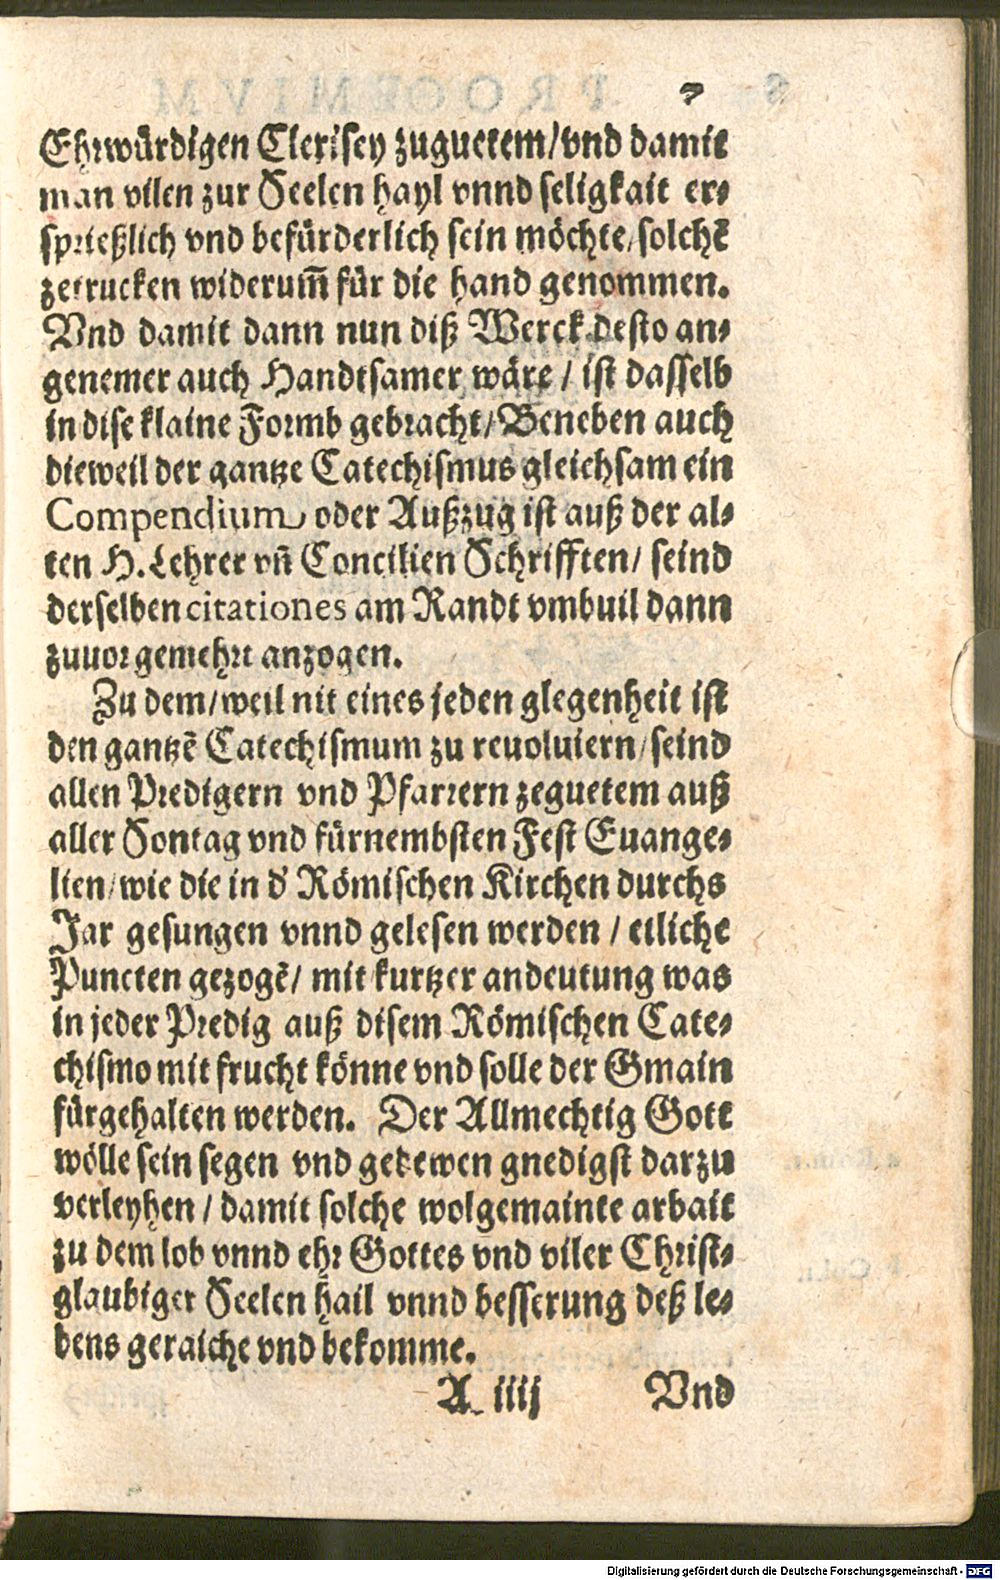 7
Ehrwürdigen Clerisey zuguetem/vnd damit
man vilen zur Seelen hayl vnnd seligkait er⸗
sprießlich vnd befürderlich sein möchte/solchẽ
zetrucken widerum̃ für die hand genommen.
Vnd damit dann nun diß Werck desto an⸗
genemer auch Handtsamer wäre / ist dasselb
in dise klaine Formb gebracht/Beneben auch
dieweil der gantze Catechismus gleichsam ein
Compendium oder Außzug ist auß der al⸗
ten H. Lehrer vñ Concilien Schrifften/ seind
derselben citationes am Randt vmbuil dann
zuuor gemehrt anzogen.
Zu dem/weil nit eines jeden glegenheit ist
den gantzẽ Catechismum zu reuoluiern/seind
allen Predigern vnd Pfarrern zeguetem auß
aller Sontag vnd fürnembsten Fest Euange⸗
lien/wie die in d' Römischen Kirchen durchs
Jar gesungen vnnd gelesen werden / etliche
Puncten gezogẽ/ mit kurtzer andeutung was
in jeder Predig auß disem Römischen Cate⸗
chismo mit frucht könne vnd solle der Gmain
fürgehalten werden. Der Allmechtig Gott
wölle sein segen vnd gedewen gnedigst darzu
verleyhen / damit solche wolgemainte arbait
zu dem lob vnnd ehr Gottes vnd viler Christ⸗
glaubiger Seelen hail vnnd besserung deß le⸗
bens geraiche vnd bekomme.
A iiij Vnd
Digitalisierung gefördert durch die Deutsche Forschungsgemeinschaft - DFG